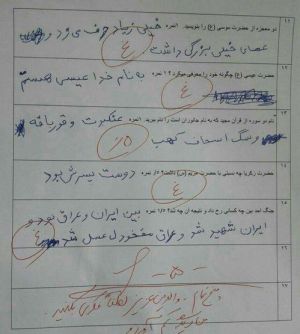 دو معجزه از حضرت موسی (ع) را بنویسید. ۱نمره خیلی زیاد حرف می زد و
عصای خیلی بزرگی داشت
۱۲
حضرت عیسی (ع) چگونه خود را معرفی کرد؟ ۱نمره به نام خدا عیسی هستم
۱۳
نام دو سوره از قرآن مجید که به نام جانوران است را بنویسید. ۱نمره عنکبوت و قورباغه
و سگ اصحاب کهف
۱۴
حضرت زکریا چه نسبتی با حضرت مریم (س) داشت؟ ۰/۵ نمره دوست پسرش بود
۱۵
جنگ احد بین چه کسانی رخ داد و نتیجه آن چه شد؟ ۱/۵ نمره بین ایران و عراق بود و
ایران شهید شد و عراق مفقود الغسل شد
۱۶
۱۷
والدین عزیز لطفاً فکری بکنید.